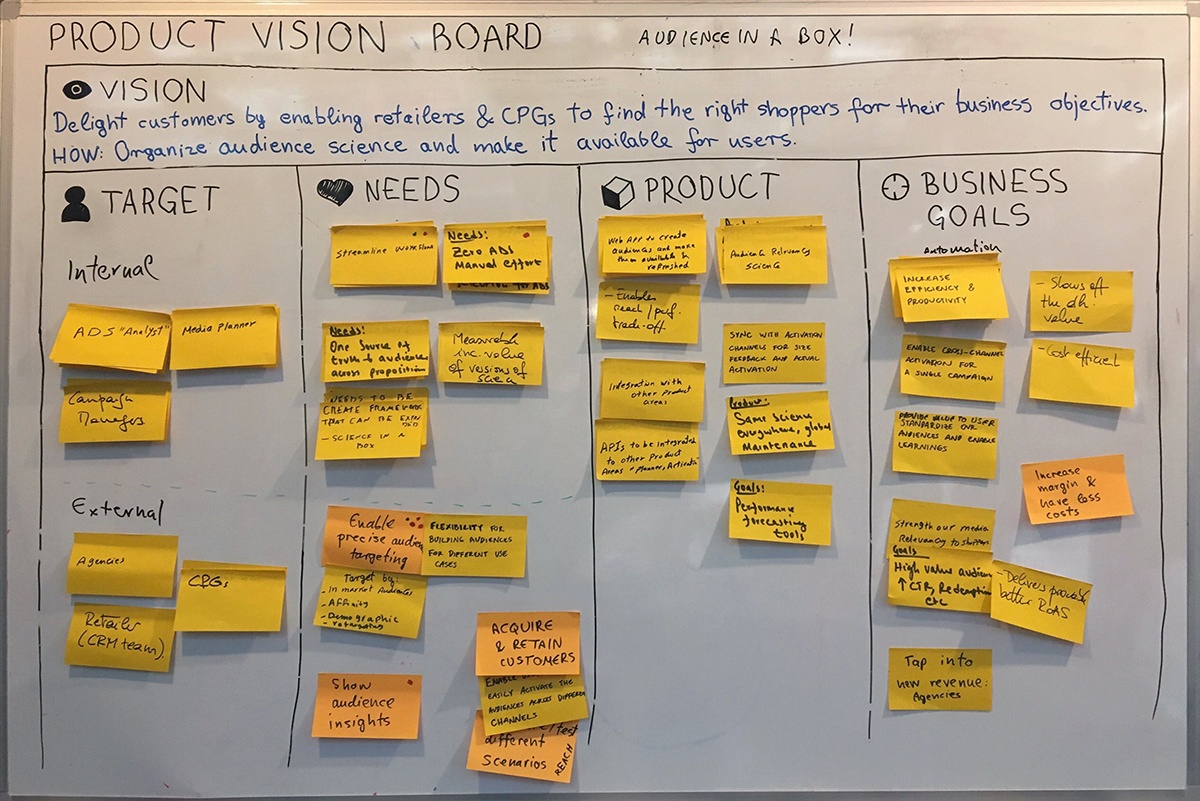 PRODUCT VISION BOARD
AUDIENCE IN A BOX!
VISION
Delight customers by enabling retailers & CPGs to find the right shoppers for their business objectives.
HOW: Organize audience science and make it available for users.
TARGET
Internal
ADS "Analyst"
Media Planner
Campaign
Managers
External
Agencies
CPGs
Retailer
(CRM team)
NEEDS
Streamline workflows
Needs:
Zero ADS
Manual effort
Needs:
One source of
truth & audience
across proposition
Measurable
inc. value
of versions of
NEEDS TO BE
CREATE FRAMEWORK
THAT CAN BE
- SCIENCE IN A
BOX
Enable
precise
targeting
FLEXIBILITY FOR
BUILDING AUDIENCES
FOR DIFFERENT USE
CASES
Target by:
- In market Audiences
- Affinity
- Demographic
- retargeting
ACQUIRE
& RETAIN
CUSTOMERS
ENABLE
EASILY ACTIVATE THE
AUDIENCES ACROSS
CHANNELS
Show
audience
insights
/test
different
Scenarios
REACH
PRODUCT
Web App to create
audiences and make
them available &
refreshed
Audience Relevancy
Science
- Enables
reach/perf.
trade-off
SYNC WITH ACTIVATION
CHANNELS FOR SIZE
FEEDBACK AND ACTUAL
ACTIVATION
Integration with
other Product
areas
Product:
Same Science
everywhere, global
Maintenance
APIs to be integrated
to other Product
Areas "Planner,
Goals:
Performance
forecasting
tools
BUSINESS
GOALS
Automation
INCREASE
EFFICIENCY &
PRODUCTIVITY
- Shows off
the dh. value
ENABLE CROSS-CHANNEL
ACTIVATION FOR
A SINGLE CAMPAIGN
- Cost efficient
PROVIDE VALUE TO USER
STANDARDIZE OUR
AUDIENCES AND ENABLE
LEARNINGS
Increase
margin &
have less
costs
Strength our media
Relevancy to shoppers
Goals
High value
↑ CTR, Redemption
etc
- Delivers
better RoAS
Tap into
new revenue:
Agencies